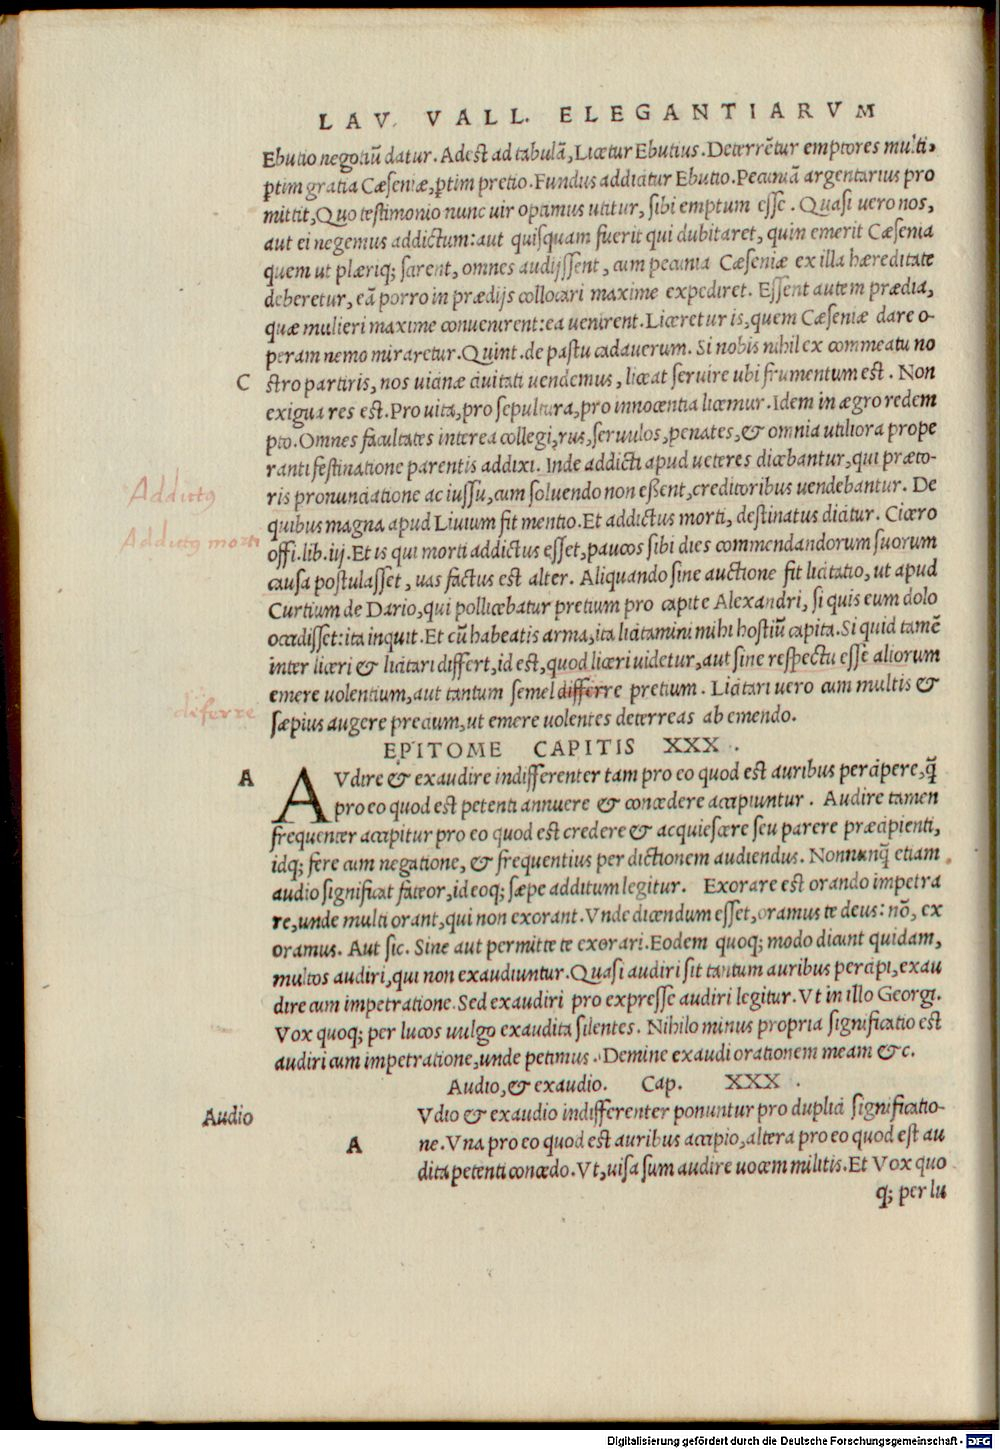 LAV. VALL. ELEGANTIARVM
Ebutio negotiũ datur. Adest ad tabulã, Licetur Ebutius. Deterrẽtur emptores multi,
ꝑtim gratia Cæseniæ, ꝑtim pretio. Fundus addicitur Ebutio. Pecuniã argentarius pro
mittit, Quo testimonio nunc uir optimus utitur, sibi emptum esse. Quasi uero nos,
aut ei negemus addictum: aut quisquam fuerit qui dubitaret, quin emerit Cæsenia
quem ut plæriq; sarent, omnes audijssent, cum pecunia Cæseniæ ex illa hæreditate
deberetur, eã porro in prædijs collocari maxime expediret. Essent autem prædia,
quæ mulieri maxime conuenirent: ea uenirent. Liceretur is, quem Cæseniæ dare o-
peram nemo miraretur. Quint. de pastu cadauerum. Si nobis nihil ex commeatu no
C
stro partiris, nos uicinæ ciuitati uendemus, liceat seruire ubi frumentum est. Non
exigua res est. Pro uita, pro sepultura, pro innocentia licemur. Idem in ægro redem
pto. Omnes facultates interea collegi, rus, seruulos, penates, & omnia utiliora prope
ranti festinatione parentis addixi. Inde addicti apud ueteres dicebantur, qui præto-
Addictꝰ
ris pronunciatione ac iussu, cum soluendo non essent, creditoribus uendebantur. De
quibus magna apud Liuium fit mentio. Et addictus morti, destinatus dicitur. Cicero
Addictꝰ morti
offi. lib. iij. Et is qui morti addictus esset, paucos sibi dies commendandorum suorum
causa postulasset, uas factus est alter. Aliquando sine auctione fit licitatio, ut apud
Curtium de Dario, qui pollicebatur pretium pro capite Alexandri, si quis eum dolo
occidisset: ita inquit. Et cũ habeatis arma, ita licitamini mihi hostiũ capita. Si quid tamẽ
inter liceri & licitari differt, id est, quod liceri uidetur, aut sine respectu esse aliorum
emere uolentium, aut tantum semel differre pretium. Licitari uero cum multis &
diferre
sæpius augere precium, ut emere uolentes deterreas ab emendo.
EPITOME CAPITIS XXX.
A
AVdire & exaudire indifferenter tam pro eo quod est auribus percipere, q̃
pro eo quod est petenti annuere & concedere accipiuntur. Audire tamen
frequenter accipitur pro eo quod est credere & acquiescere seu parere præcipienti,
idq; fere cum negatione, & frequentius per dictionem audiendus. Nonnunq̃ etiam
audio significat fateor, id eoq; sæpe additum legitur. Exorare est orando impetra
re, unde multi orant, qui non exorant. Vnde dicendum esset, oramus te deus: nõ, ex
oramus. Aut sic. Sine aut permitte te exorari. Eodem quoq; modo dicunt quidam,
multos audiri, qui non exaudiuntur. Quasi audiri sit tantum auribus percipi, exau
dire cum impetratione. Sed exaudiri pro expresse audiri legitur. Vt in illo Georgi.
Vox quoq; per lucos uulgo exaudita silentes. Nihilo minus propria significatio est
audiri cum impetratione, unde petimus. Domine exaudi orationem meam &c.
Audio, & exaudio. Cap. XXX.
Audio
Vdio & exaudio indifferenter ponuntur pro duplici significatio-
A
ne. Vna pro eo quod est auribus accipio, altera pro eo quod est au
dita petenti concedo. Vt, uisa sum audire uocem militis. Et Vox quo
q; per lu
Digitalisierung gefördert durch die Deutsche Forschungsgemeinschaft - DFG